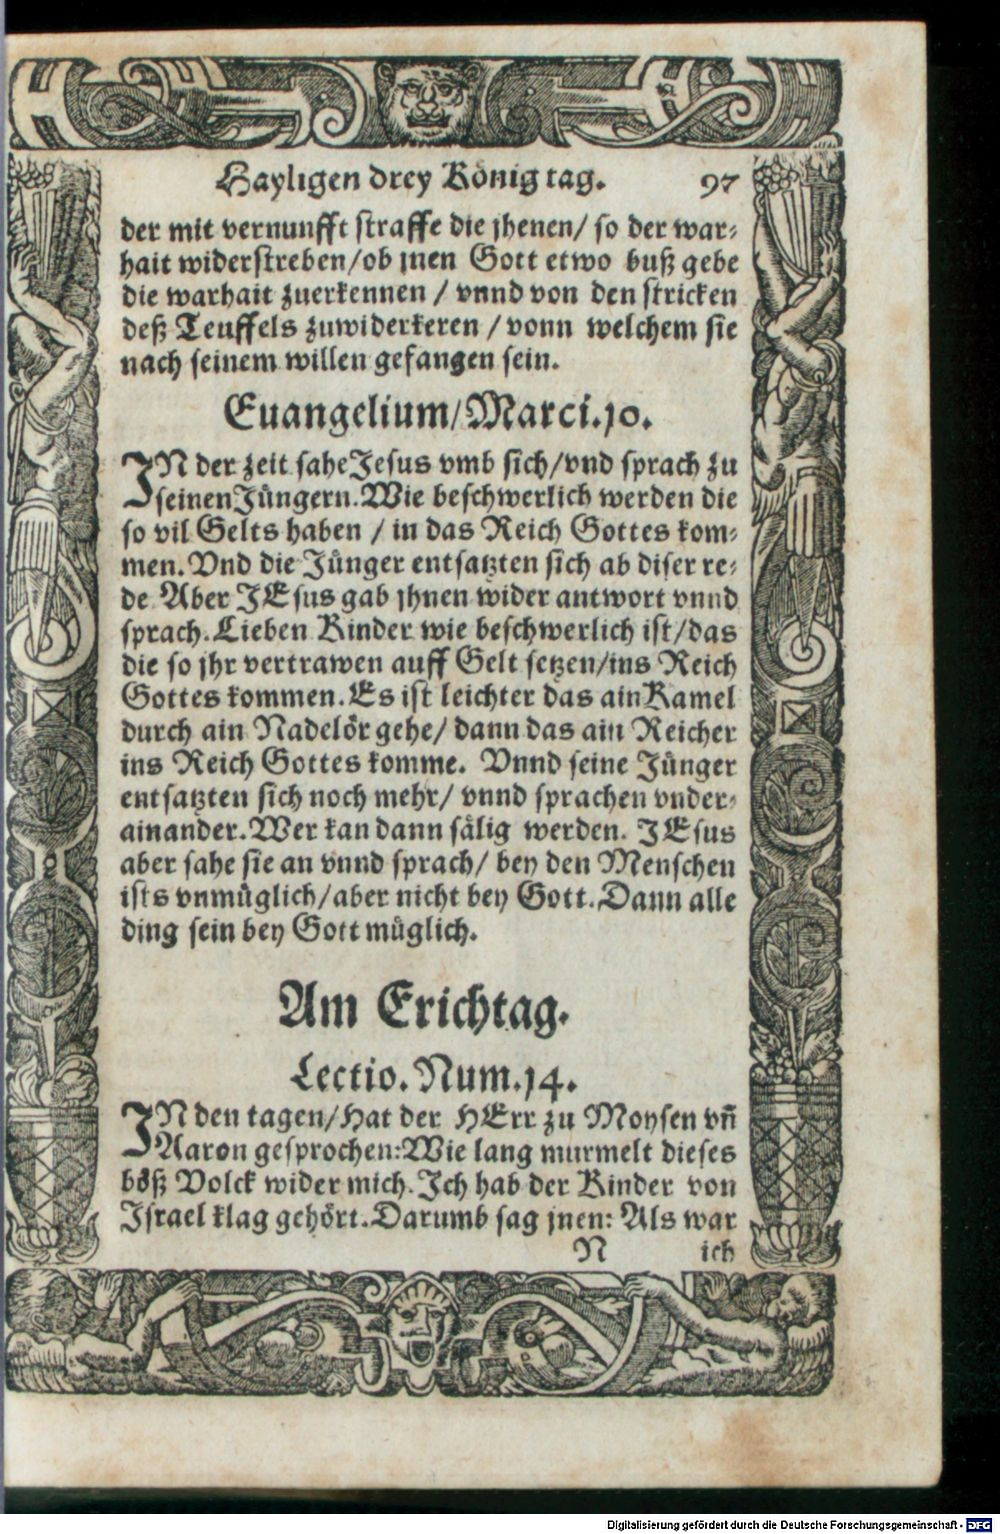 Hayligen drey König tag. 97
der mit vernunfft straffe die jhenen/ so der war⸗
hait widerstreben/ob jnen Gott etwo buß gebe
die warhait zuerkennen / vnnd von den stricken
deß Teuffels zuwiderkeren / vonn welchem sie
nach seinem willen gefangen sein.
Euangelium/Marci.10.
IN der zeit sahe Jesus vmb sich/vnd sprach zu
seinen Jüngern. Wie beschwerlich werden die
so vil Gelts haben / in das Reich Gottes kom⸗
men. Vnd die Jünger entsatzten sich ab diser re⸗
de Aber JEsus gab jhnen wider antwort vnnd
sprach. Lieben Kinder wie beschwerlich ist/das
die so jhr vertrawen auff Gelt setzen/ins Reich
Gottes kommen. Es ist leichter das ain Kamel
durch ain Nadelör gehe/ dann das ain Reicher
ins Reich Gottes komme. Vnnd seine Jünger
entsatzten sich noch mehr/ vnnd sprachen vnder⸗
ainander. Wer kan dann sälig werden. JEsus
aber sahe sie an vnnd sprach/ bey den Menschen
ists vnmüglich/aber nicht bey Gott. Dann alle
ding sein bey Gott müglich.
Am Erichtag.
Lectio. Num.14.
IN den tagen/Hat der HErr zu Moysen vñ
Aaron gesprochen: Wie lang murmelt dieses
böß Volck wider mich. Ich hab der Kinder von
Israel klag gehört. Darumb sag jnen: Als war
N ich
Digitalisierung gefördert durch die Deutsche Forschungsgemeinschaft - DFG